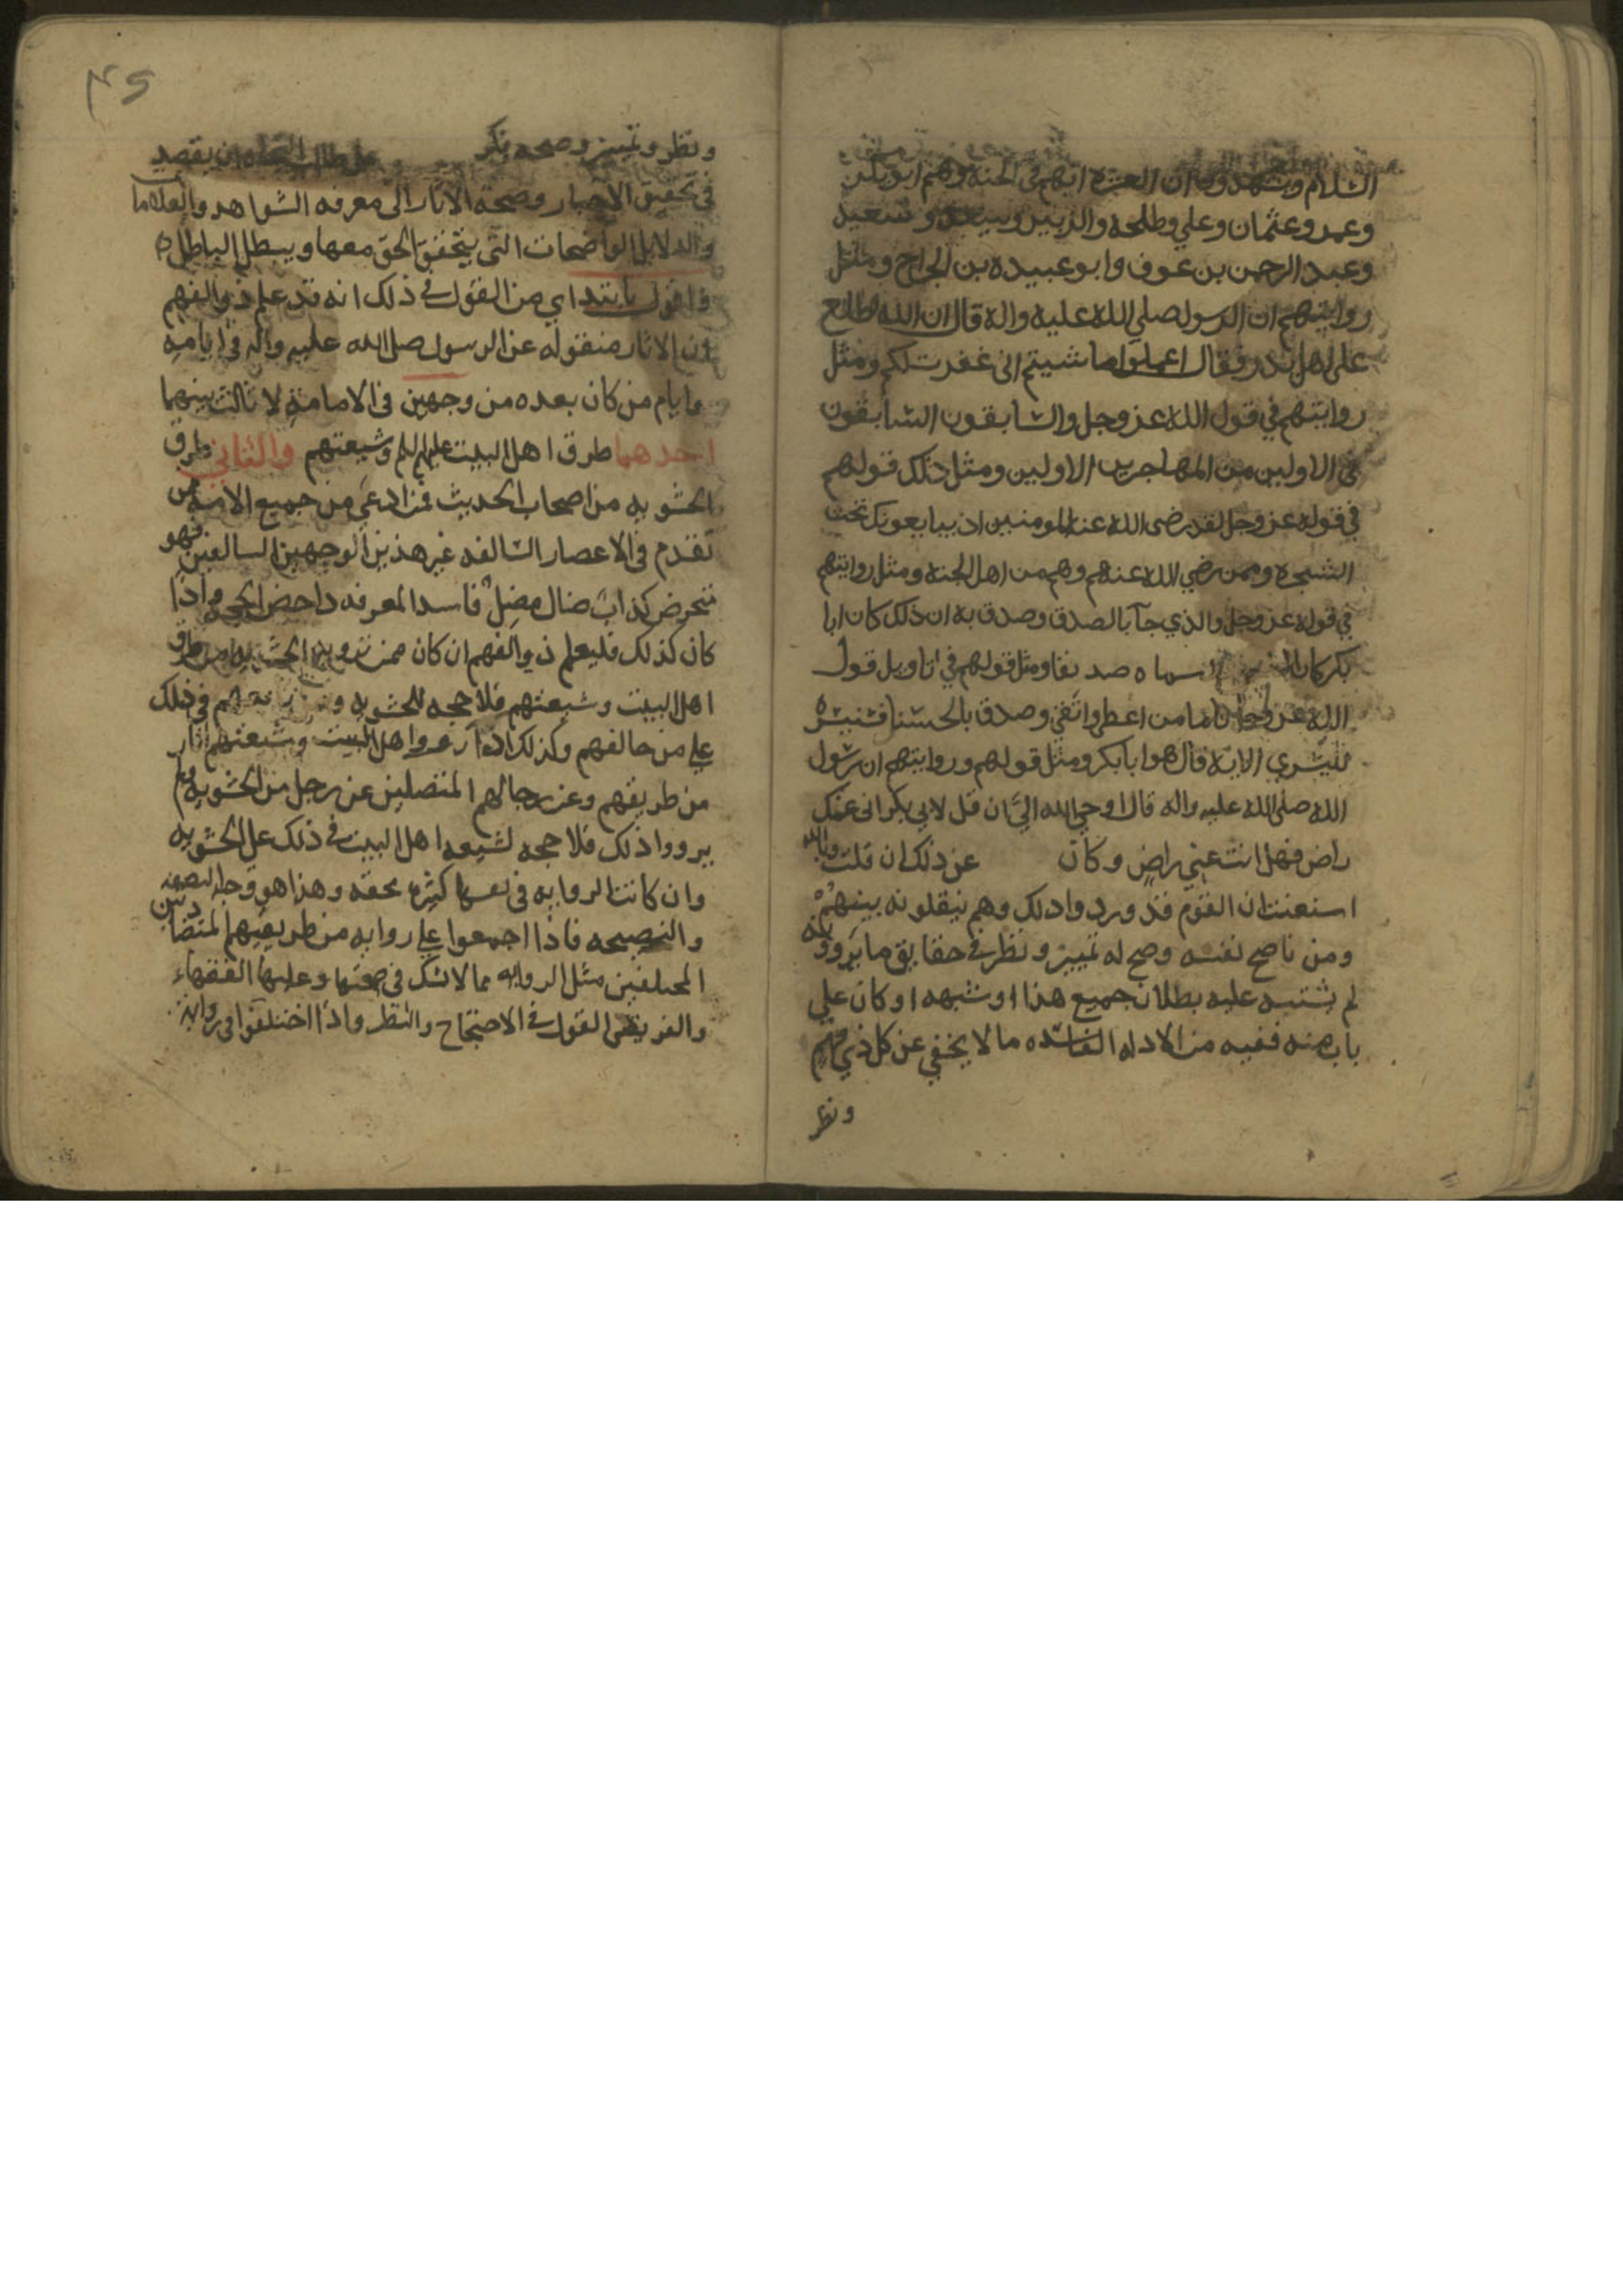 السلام وشهدوا ان العشرة انهم في الجنة وهم ابو بكر
وعمر وعثمان وعلي وطلحه والزبير وسعد وسعيد
وعبد الرحمن بن عوف وابو عبيده بن الجراح ومثل
روايتهم ان الرسول صلى الله عليه واله قال ان الله اطلع
على اهل بدر فقال اعملوا ما شيتم اني غفرت لكم ومثل
روايتهم في قول الله عز وجل والسابقون السابقون
في الاولين من المهاجرين الاولين ومثل ذلك قولهم
في قوله عز وجل لقد رضى الله عن المومنين اذ يبايعونك تحت
الشجره وممن رضي الله عنهم وهم من اهل الجنه ومثل روايتهم
في قوله عز وجل والذي جآ بالصدق وصدق به ان ذلك كان ابا
بكر كان سماه صديقا ومثل قولهم في تاويل قول
الله عز وجل فاما من اعطى واتقى وصدق بالحسنا فسنيسره
لليسرى الاية قال هو ابا بكر ومثل قولهم وروايتهم ان رسول
الله صلى الله عليه واله قال اوحي الله الي ان قل لابي بكر اني عنك
راض فهل انت عني راضٍ وكان عن ذلك ان قلت وبالله
استعنت ان القوم قد وردوا ذلك وهم ينقلونه بينهم
ومن ناصح نفسه وصح له تمييز ونظر في حقايق ما يروونه
لم يشتبه عليه بطلان جميع هذا او شبهه او كان علي
بابه منه ففيه من الادله الفاسده ما لا يخفي عن كل ذي فهم
ونظر
٤٢
ونظر وتمييز وصحه يفكر على طالب ان يقصد
في تحقيق الاخبار وصحة الاثار الى معرفه الشواهد والعلاما
والدلايل الواضحات التي يتحقق الحق معها ويبطل الباطل
واقول بابتداي من القول في ذلك انه قد علم ذو الفهم
ان الاثار منقوله عن الرسول صلى الله عليه واله في ايامه
وايام من كان بعده من وجهين في الامامة لا ثالث بينهما
احدهما طرق اهل البيت عليهم السلم وشيعتهم والثاني طرق
الحشويه من اصحاب الحديث فمن ادعى من جميع الامه من
تقدم في الاعصار السالفه غير هذين الوجهين السالفين فهو
متخرص كذاب ضال مضل فاسد المعرفه داحض الحجه واذا
كان كذلك فليعلم ذو الفهم ان كان ممن تزويه الحشويه من طرق
اهل البيت وشيعتهم فلا حجه للحشويه و في ذلك
علي من خالفهم وكذلك اذا رووا اهل البيت وشيعتهم اثار
من طريقهم وعن رجالهم المتصلين عن رجل من الحشويه
يرووا ذلك فلا حجه لشيعه اهل البيت في ذلك على الحشويه
وان كانت الروايه في نفسها كثيره محقه وهذا هو وجه النصفه
والنصيحه فاذا اجمعوا علي روايه من طريقيهم المتضادين
المختلفين مثل الروايه مما لا شك في صحتها وعليها الفقهاء
والفريقين القول في الاحتجاج والنظر واذا اختلفوا في روايه